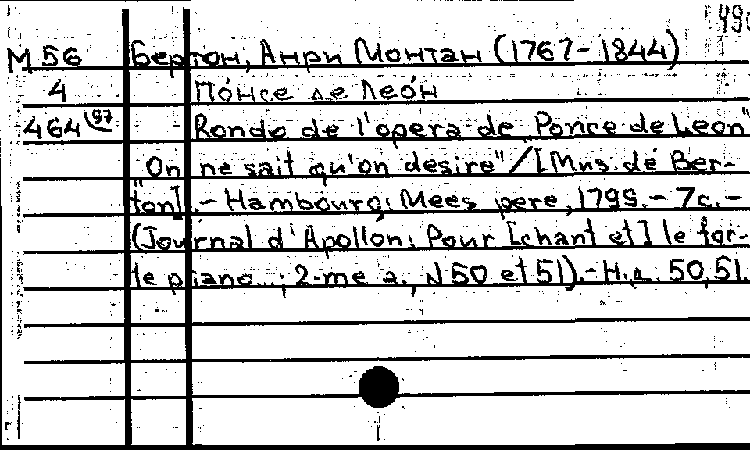 М 56 Бертон, Анри Монтан (1767-1844)
4 Понсе де Леон
464 (97 Rondo de l'opera de "Ponce de Leon"
"On ne sait qu'on desire"/[Mus. de Ber-
ton]. - Hambourg: Mees pere, 1799. - 7c. -
(Journal d'Apollon: Pour [chant et] le for-
te piano...; 2-me a., N 50 et 51). - Н.д. 50,51.